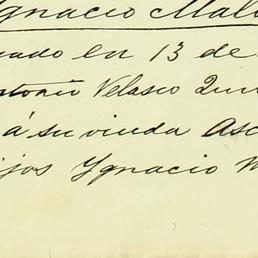 Ygnacio Malo
uado en 13 de
Antonio Velasco Quin
á su viuda Asc
ijos Ygnacio M